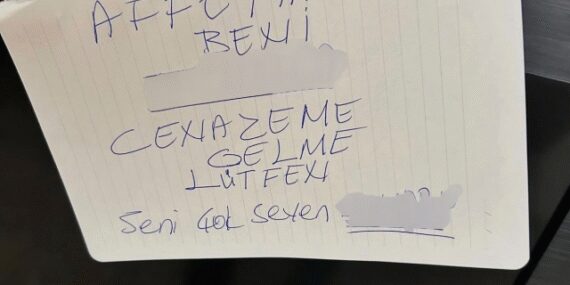 BENİ
CENAZEME
GELME
LÜTFEN
Seni Çok Seven